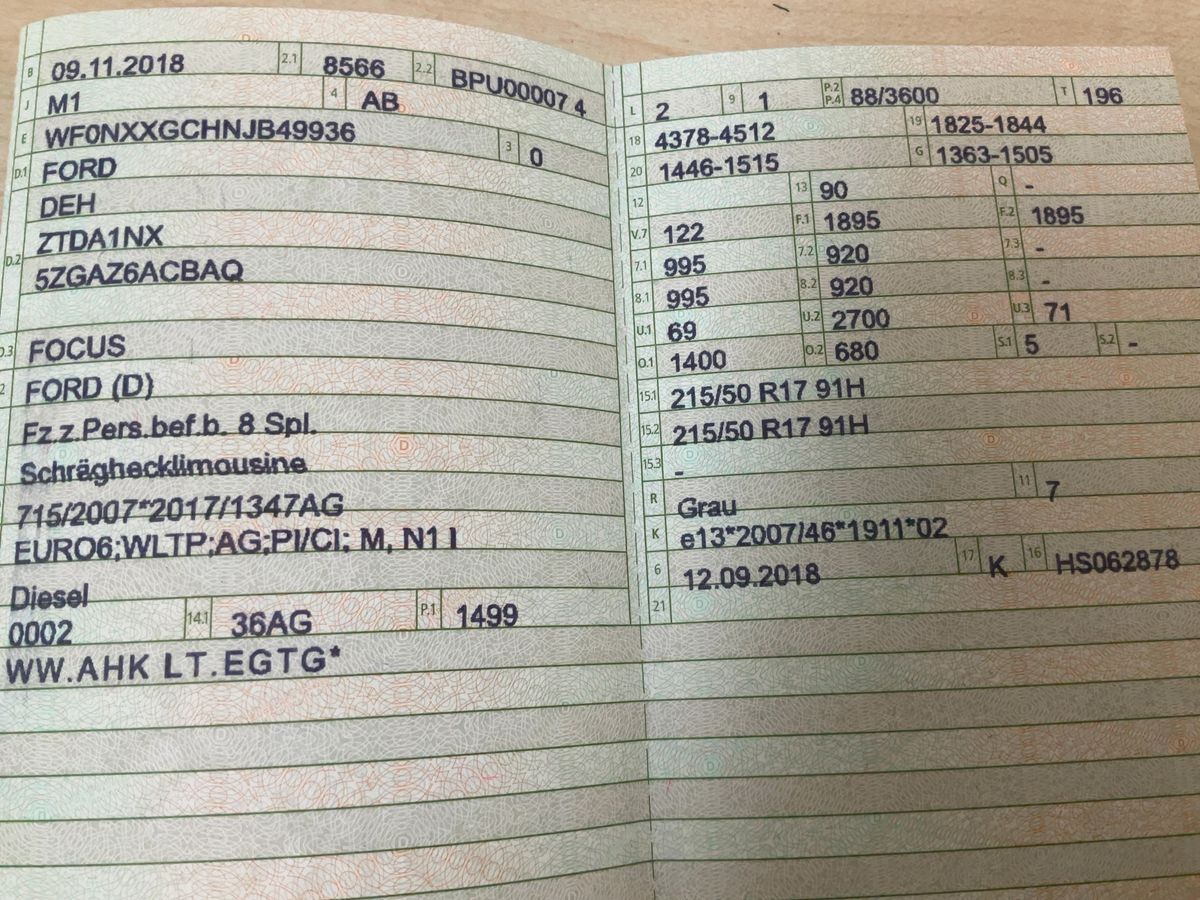 B 09.11.2018 2.1 8566 2.2 BPU00007 4
J M1 4 AB
E WF0NXXGCHNJB49936 3 0
D.1 FORD
DEH
D.2 ZTDA1NX
5ZGAZ6ACBAQ
D.3 FOCUS
2 FORD (D)
Fz.z.Pers.bef.b. 8 Spl.
Schräghecklimousine
715/2007*2017/1347AG
EURO6;WLTP;AG;PI/CI; M, N1 I
Diesel
0002 14.1 36AG P.1 1499
WW.AHK LT.EGTG*
L 2 9 1 P.2 P.4 88/3600 T 196
18 4378-4512 19 1825-1844
20 1446-1515 G 1363-1505
12 13 90 Q -
V.7 122 F.1 1895 F.2 1895
7.1 995 7.2 920 7.3 -
8.1 995 8.2 920 8.3 -
U.1 69 U.2 2700 U.3 71
O.1 1400 O.2 680 S.1 5 S.2 -
15.1 215/50 R17 91H
15.2 215/50 R17 91H
15.3 -
R Grau 11 7
K e13*2007/46*1911*02
6 12.09.2018 17 K 16 HS062878
21